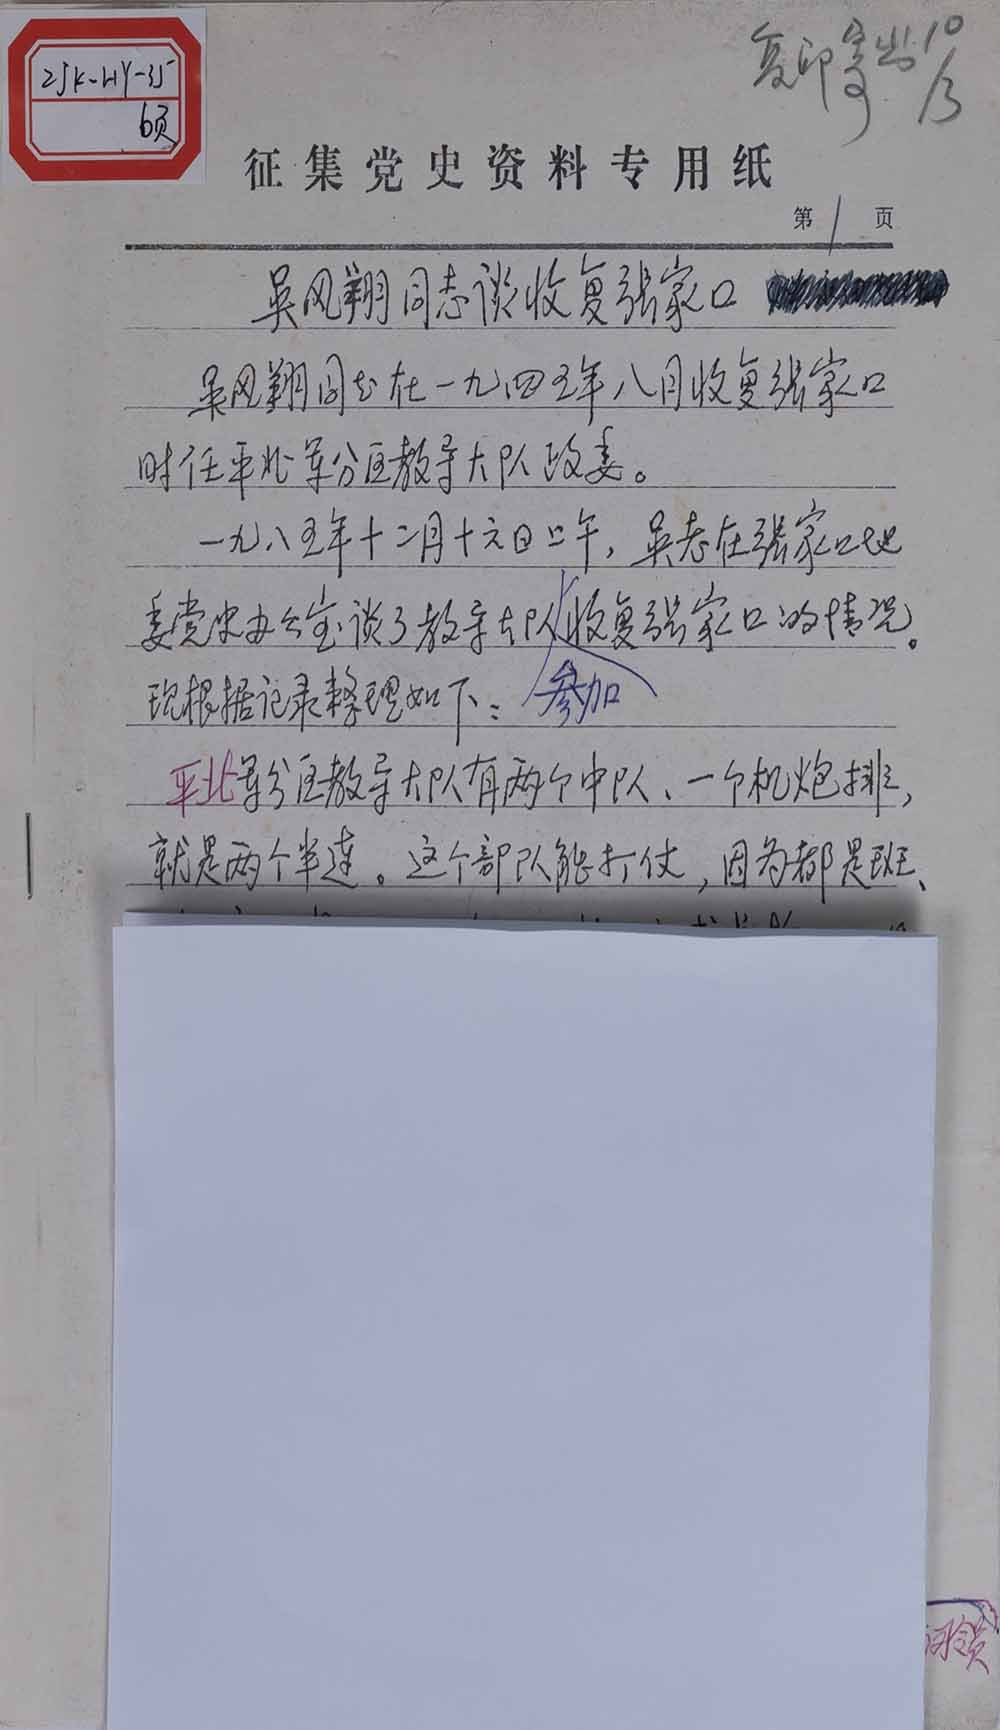 ZJK-HY-35
6页
复印寄出10/3
征集党史资料专用纸
第1页
吴凤翔同志谈收复张家口
吴凤翔同志在一九四五年八月收复张家口
时任平北军分区教导大队政委。
一九八五年十二月十六日上午，吴老在张家口地
委党史办公室谈了教导大队参加收复张家口的情况。
现根据记录整理如下：
平北军分区教导大队有两个中队、一个机炮排，
就是两个半连。这个部队能打仗，因为都是班、